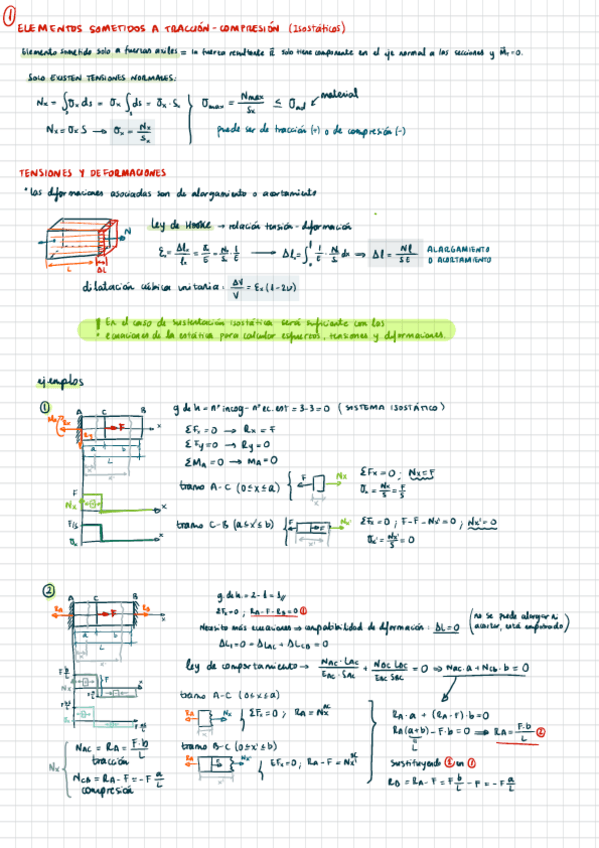 1
ELEMENTOS SOMETIDOS A TRACCIÓN-COMPRESIÓN (Isostáticos)
Elemento sometido solo a fuerzas axiles = la fuerza resultante R solo tiene componente en el eje normal a las secciones y M=0.
SOLO EXISTEN TENSIONES NORMALES:
Nx = ∫σx ds = σx ∫ds = σx · Sx
σmax = Nmax/Sx ≤ σad material
Nx = σx S → σx = Nx/Sx
puede ser de tracción (+) o de compresión (-)
TENSIONES Y DEFORMACIONES
* las deformaciones asociadas son de alargamiento o acortamiento
Ley de HOOKE → relación tensión-deformación
N
L ΔL
→ Δl = Nl/SE ALARGAMIENTO
O ACORTAMIENTO
dilatación cúbica unitaria: ΔV/V = εx (1-2υ)
! En el caso de sustentación isostática será suficiente con las
ecuaciones de la estática para calcular esfuerzos, tensiones y deformaciones.
ejemplos
1
A C B
g de h = nº incog - nº ec. est = 3-3=0 (SISTEMA ISOSTÁTICO)
ΣFx=0 → Rx = F
ΣFy=0 → Ry = 0
ΣMA=0 → MA=0
tramo A-C (0≤x≤a)
ΣFx=0; Nx=F
σx = Nx/S = F/S
tramo C-B (a≤x'≤b)
ΣFx=0; F-F-Nx'=0; Nx'=0
σx' = Nx'/S = 0
2
A C B
g.de h = 2-1=1
ΣFx=0; RA-F-RB=0 1
Necesito más ecuaciones → compatibilidad de deformación: ΔL=0 (no se puede alargar ni
acortar, está empotrado)
ΔL=0 = ΔLAC + ΔLCB = 0
ley de comportamiento → NAC·LAC/EAC·SAC + NBC LBC/EBC SBC = 0 ⇒ NAC·a + NCB·b = 0
tramo A-C (0≤x≤a)
ΣFx=0; RA = Nx AC
RA·a + (RA-F)·b=0
RA(a+b) - F·b = 0 ⇒ RA = F·b/L 2
tramo B-C (0≤x'≤b)
ΣFx=0; RA-F = Nx' BC
Nx
NAC = RA = F·b/L
tracción
NCB = RA-F = -F a/L
compresión
Sustituyendo 2 en 1
RB = RA-F = F b/L - F = -F a/L